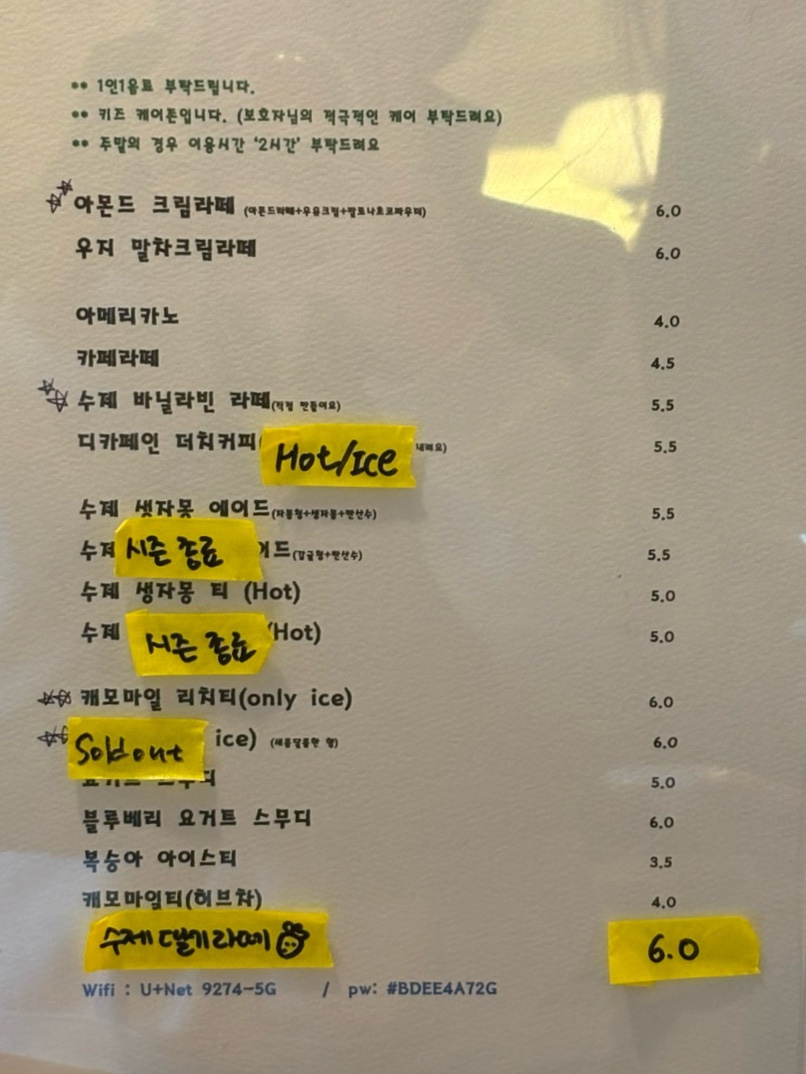 ** 1인1음료 부탁드립니다.
** 키즈 케어존입니다. (보호자님의 적극적인 케어 부탁드려요)
** 주말의 경우 이용시간 ‘2시간’ 부탁드려요
아몬드 크림라떼 6.0
우지 말차크림라떼 6.0
아메리카노 4.0
카페라떼 4.5
수제 바닐라빈 라떼(직접 만들어요) 5.5
디카페인 더치커피( Hot/Ice 내려요) 5.5
수제 생자몽 에이드(자몽청+생자몽+탄산수) 5.5
수제 시즌 종료 이드(감귤청+탄산수) 5.5
수제 생자몽 티 (Hot) 5.0
수제 시즌 종료 (Hot) 5.0
캐모마일 리치티(only ice) 6.0
Sold out ice) (새콤달콤한 향) 6.0
요거트 스무디 5.0
블루베리 요거트 스무디 6.0
복숭아 아이스티 3.5
캐모마일티(허브차) 4.0
수제 딸기라떼 6.0
Wifi : U+Net 9274-5G / pw: #BDEE4A72G